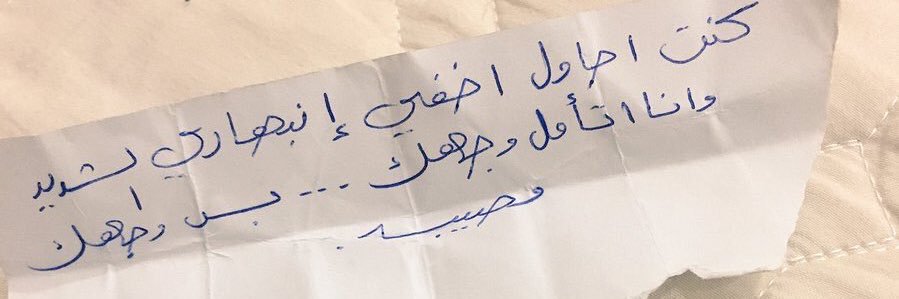 كنت احاول اخفي إنبهاري لشديد
وانا اتأمل وجهك ... بس وجهك